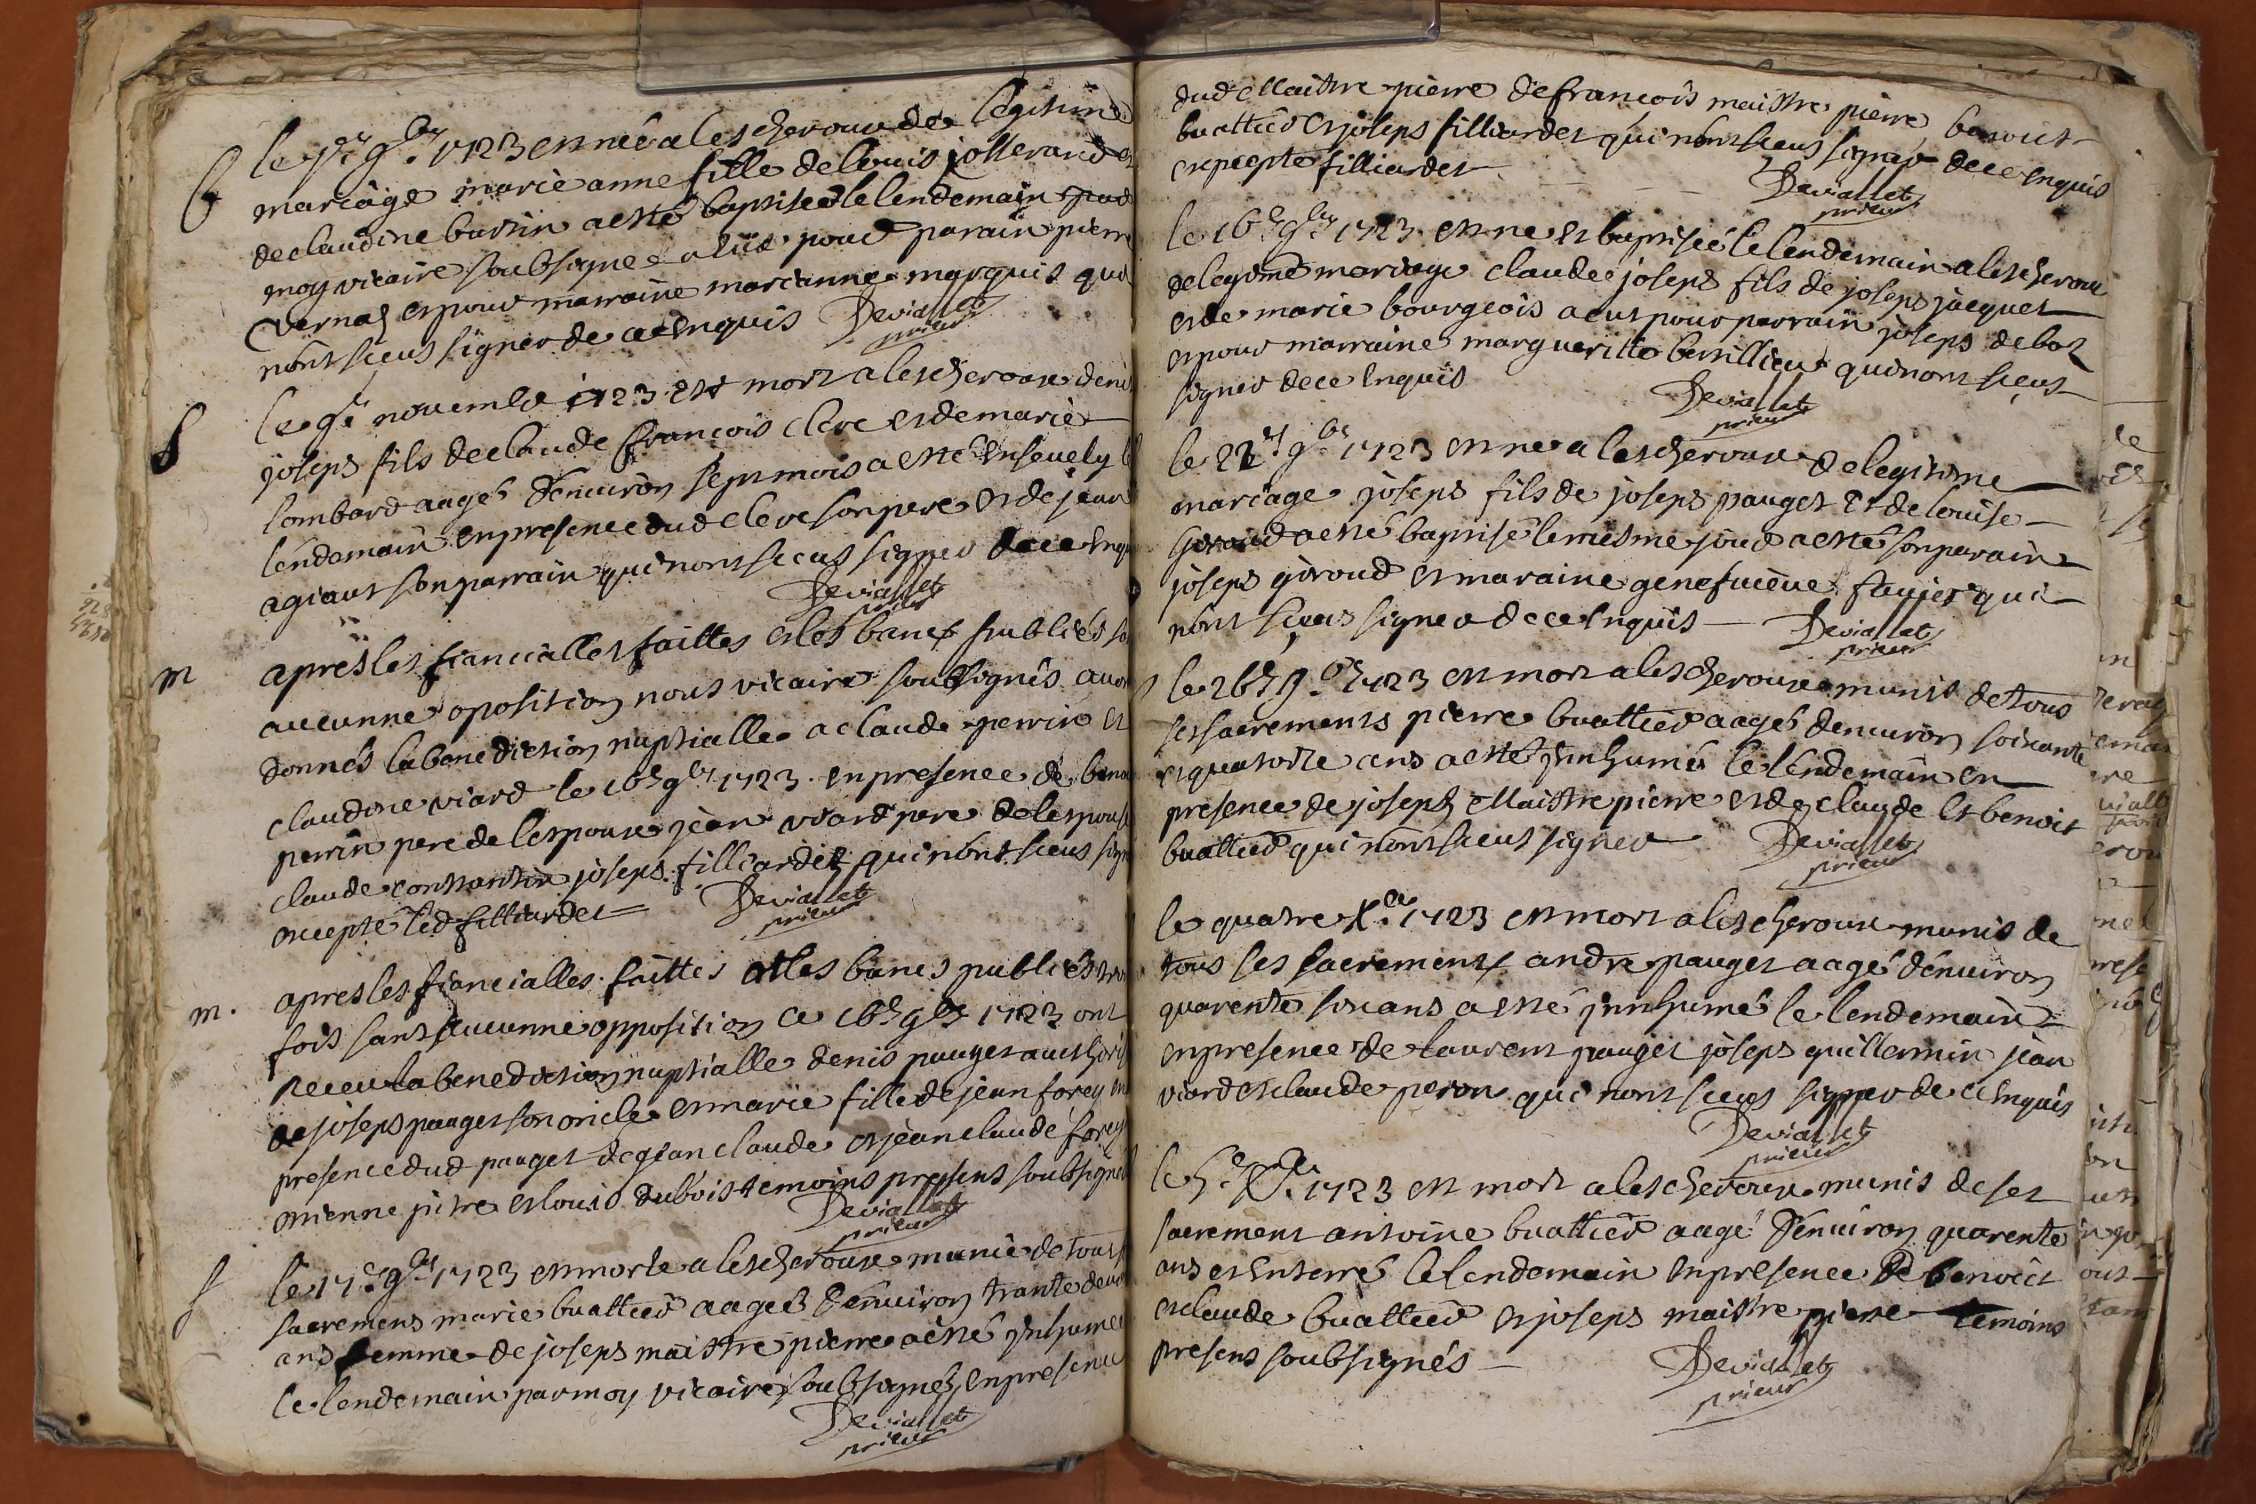 b
le 7e 9bre 1723 est née a lescheroux de legitime
mariage marie anne fille de louis jotterand et
de claudine burtin a esté baptisee le lendemain par
moy vicaire soubsigne a eüe pour parain pierre
vernas et pour marraine marianne marquis qui
nont sceus signer de ce enquis Deviallet
prieur
f
le 9e novembre 1723 est mort a lescheroux denis
joseph fils de claude françois clere et de marie
lombard aagé d'environ sept mois a esté ensevely le
lendemain en presence dud clere son pere et de jean
agiaut son parrain qui nont sceus signer de ce enquis
Deviallet
prieur
m
apres les fiancialles faittes et les bancs publiés sans
aucunne oposition nous vicaire soubsignés avons
donnés la benediction nuptialle a claude perrin et
claudine viard le 16e 9bre 1723 en presence de benoit
perrin pere de lespoux jean viard pere de lespouse
claude constantin joseph filliardet qui nont sceus signer
excepté led filliardet Deviallet
prieur
m.
apres les fiancialles faittes et les bancs publiés trois
fois sans aucunne opposition ce 16e 9bre 1723 ont
receu la benediction nuptialle denis pauget authorisé
de joseph pauget son oncle et marie fille de jean forey en
presence dud pauget de jean claude et jean claude forey
estienne pitre et louis dubois temoins presens soubsignés
Deviallet
prieur
f
le 17e 9bre 1723 est morte a lescheroux munie de tous ses
sacremens marie buattier aagee d'environ trante deux
ans femme de joseph maistre pierre a esté inhumee
le lendemain par moy vicaire soubsignez en presence
Deviallet
prieur
dud Maistre pierre de françois maistre pierre, benoist
buattier et joseph filliardet qui nont sceus signer de ce enquis
excepté filliardet Deviallet
prieur
le 16e 9bre 1723 est ne et baptisé le lendemain a lescheroux
de legitime mariage claude joseph fils de joseph jacquet
et de marie bourgeois a eut pour parrain joseph debost
et pour marraine margueritte bevillieu qui nont sceus
signer de ce enquis Deviallet
prieur
le 22e 9bre 1723 est ne a lescheroux de legitime
mariage joseph fils de joseph pauget et de louise
Giroud a esté baptisé le mesme jour a esté son parain
joseph giroud et maraine genefuieue faujet qui
nont sceus signer de ce enquis Deviallet
prieur
le 26e 9bre 1723 est mort a lescheroux munis de tous
ses sacrements pierre buattier aagé denviron soixante
et quatorze ans a esté innhumé le lendemain en
presence de joseph Maistre pierre et de claude et benoit
buattier qui nont sceus signer Deviallet
prieur
le quatre Xbre 1723 est mort a lescheroux munis de
tous ses sacrements andre pauget aagé denviron
quarente six ans a esté innhumé le lendemain
en presence de laurent pauget joseph guillermin jean
viard et claude peron qui nont sceus signer de ce enquis
Deviallet
prieur
le 5e Xbre 1723 est mort a lescheroux munis de ses
sacrement antoine buattier aagé d'environ quarente
ans et enterré le lendemain en presence de benoict
et claude buattier et joseph maistre pierre temoins
presens soubsignés Deviallet
prieur